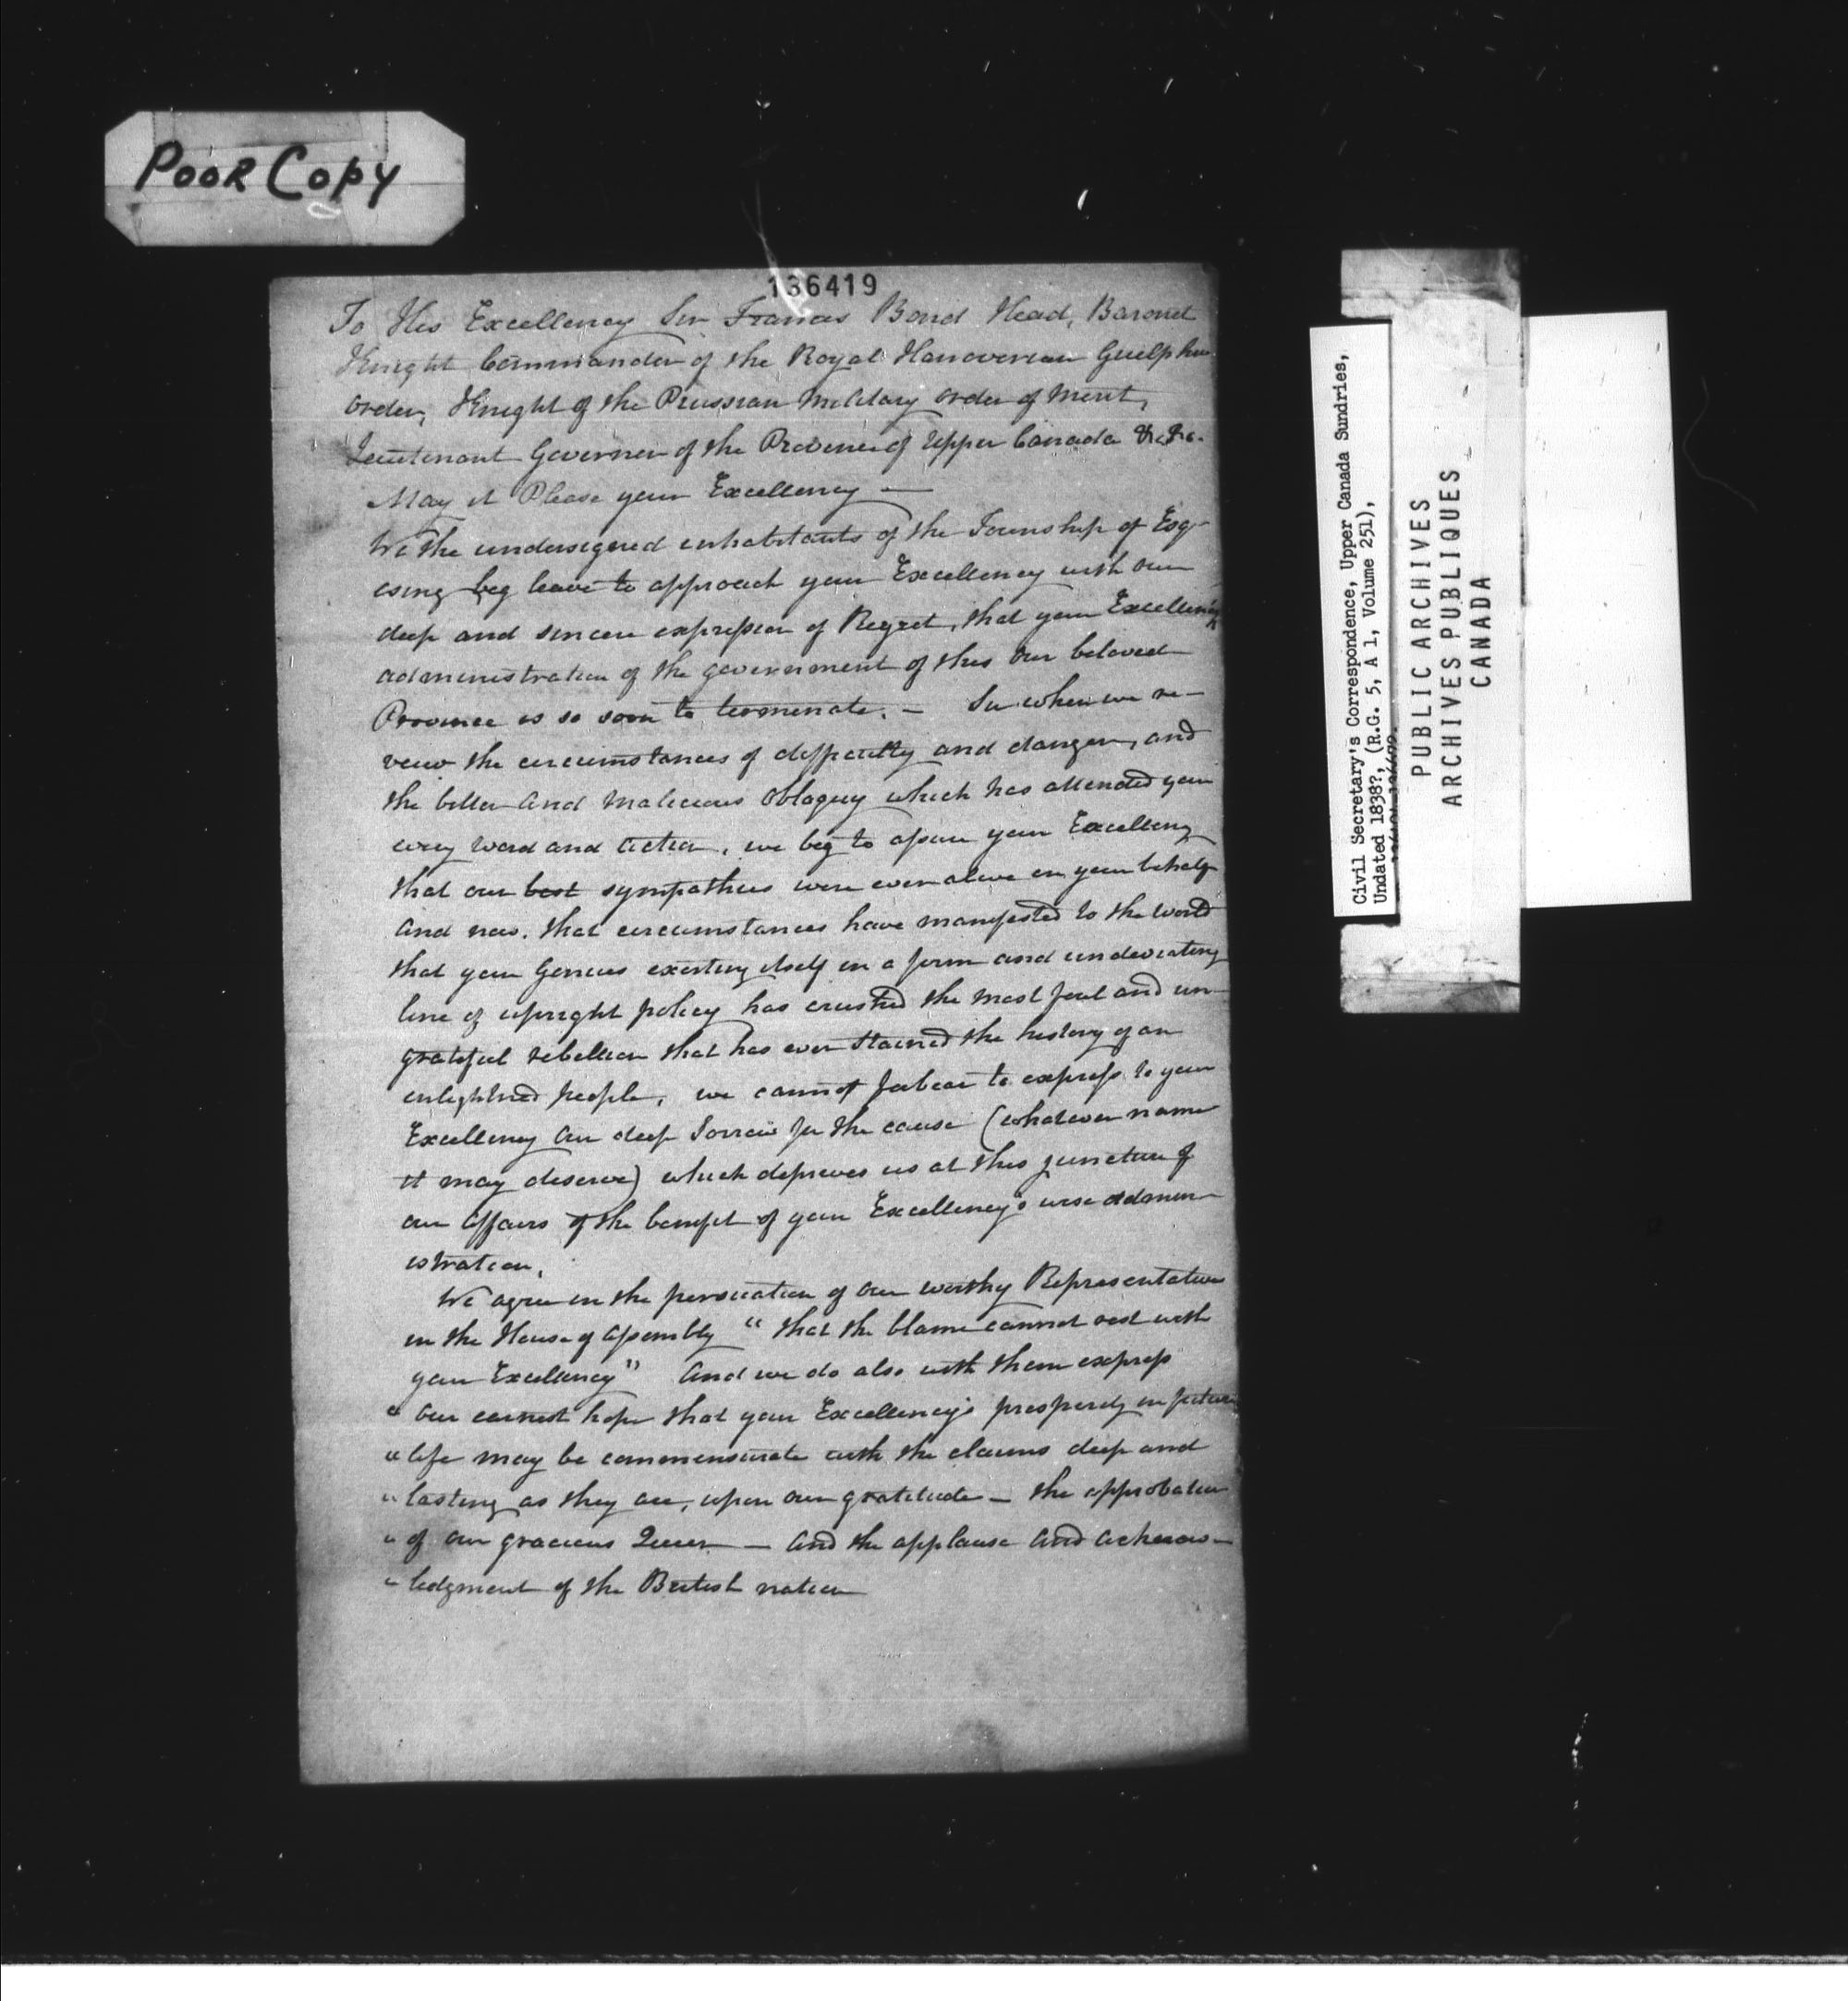 POOR COPY
136419
To His Excellency Sir Francis Bond Head, Baronet
Knight Commander of the Royal Hanoverian Guelphic
order, Knight of the Prussian Military order of Merit,
Lieutenant Governor of the Province of Upper Canada &c. &c.
May it Please your Excellency —
We the undersigned inhabitants of the Township of Esq-
esing beg leave to approach your Excellency with our
deep and sincere expression of Regret, that your Excellency's
administration of the government of this our beloved
Province is so soon to terminate. — Sir when we re-
view the circumstances of difficulty and danger, and
the bitter and malicious obloquy which has attended your
every word and action, we beg to assure your Excellency
that our best sympathies were ever alive in your behalf
and now, that circumstances have manifested to the world
that your Genius exerting itself in a firm and undeviating
line of upright policy has crushed the most foul and un-
grateful rebellion that has ever stained the history of an
enlightned people, we cannot forbear to express to your
Excellency our deep sorrow for the cause (whatever name
it may deserve) which deprives us at this juncture of
our affairs of the benefit of your Excellency's wise admin-
istration.
We agree in the persuation of our worthy Representatives
in the House of Assembly "that the blame cannot rest with
your Excellency" And we do also with them express
" our earnest hope that your Excellency's prosperity in future
" life may be commensurate with the claims deep and
" lasting as they are, upon our gratitude — the approbation
" of our gracious Queen — and the applause and acknow-
" ledgment of the British nation
Civil Secretary's Correspondence, Upper Canada Sundries,
Undated 1838?, (R.G. 5, A 1, Volume 251),
PUBLIC ARCHIVES
ARCHIVES PUBLIQUES
CANADA